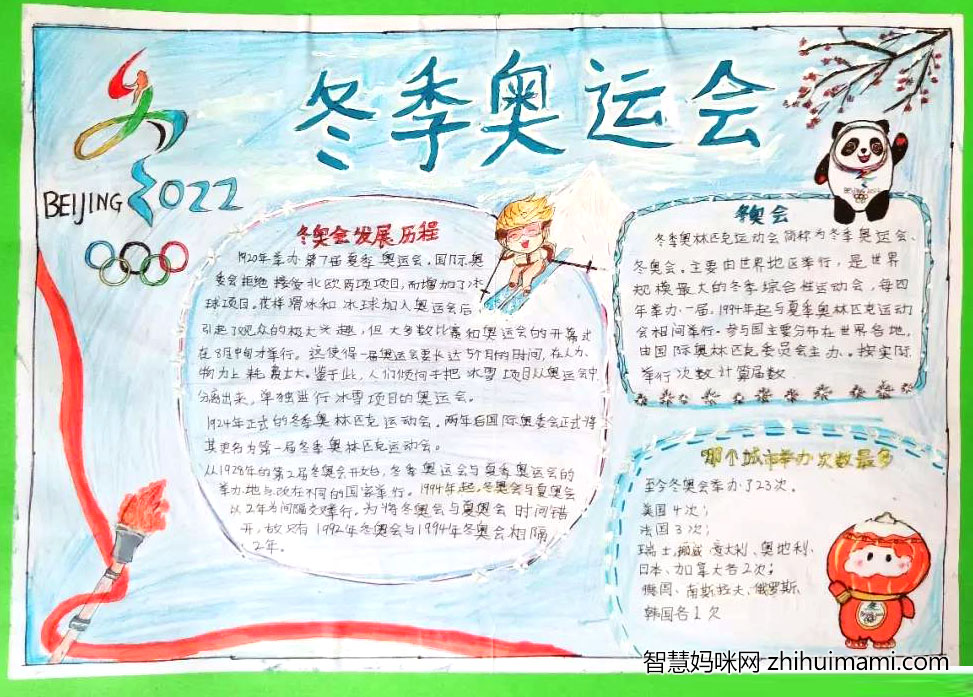 冬季奥运会
BEIJING 2022
冬奥会发展历程
1920年举办第7届夏季奥运会,国际奥
委会拒绝接受北欧两项项目,而增加了冰
球项目。花样滑冰和冰球加入奥运会后,
引起了观众的极大兴趣,但大多数比赛和奥运会的开幕式
在8月中旬才举行。这使得一届奥运会要长达5个月的时间,在人力、
物力上耗费太大。鉴于此,人们倾向于把冰雪项目从奥运会中
分离出来,单独进行冰雪项目的奥运会。
1924年正式的冬季奥林匹克运动会。两年后国际奥委会正式将
其更名为第一届冬季奥林匹克运动会。
从1928年的第2届冬奥会开始,冬季奥运会与夏季奥运会的
举办地与改在不同的国家举行。1994年起,冬奥会与夏奥会
以2年为间隔交叉举行。为将冬奥会与夏奥会时间错
开,故只有1992年冬奥会与1994年冬奥会相隔
2年。
冬奥会
冬季奥林匹克运动会简称为冬季奥运会、
冬奥会。主要由世界地区举行,是世界
规模最大的冬季综合性运动会,每四
年举办一届,1994年起与夏季奥林匹克运动
会相间举行。参与国主要分布在世界各地,
由国际奥林匹克委员会主办。按实际
举行次数计算届数.
哪个城市举办次数最多
至今冬奥会举办了23次。
美国4次;
法国3次;
瑞士,挪威、意大利、奥地利、
日本、加拿大各2次;
德国、南斯拉夫、俄罗斯、
韩国各1次
智慧妈咪网 zhihuimami.com